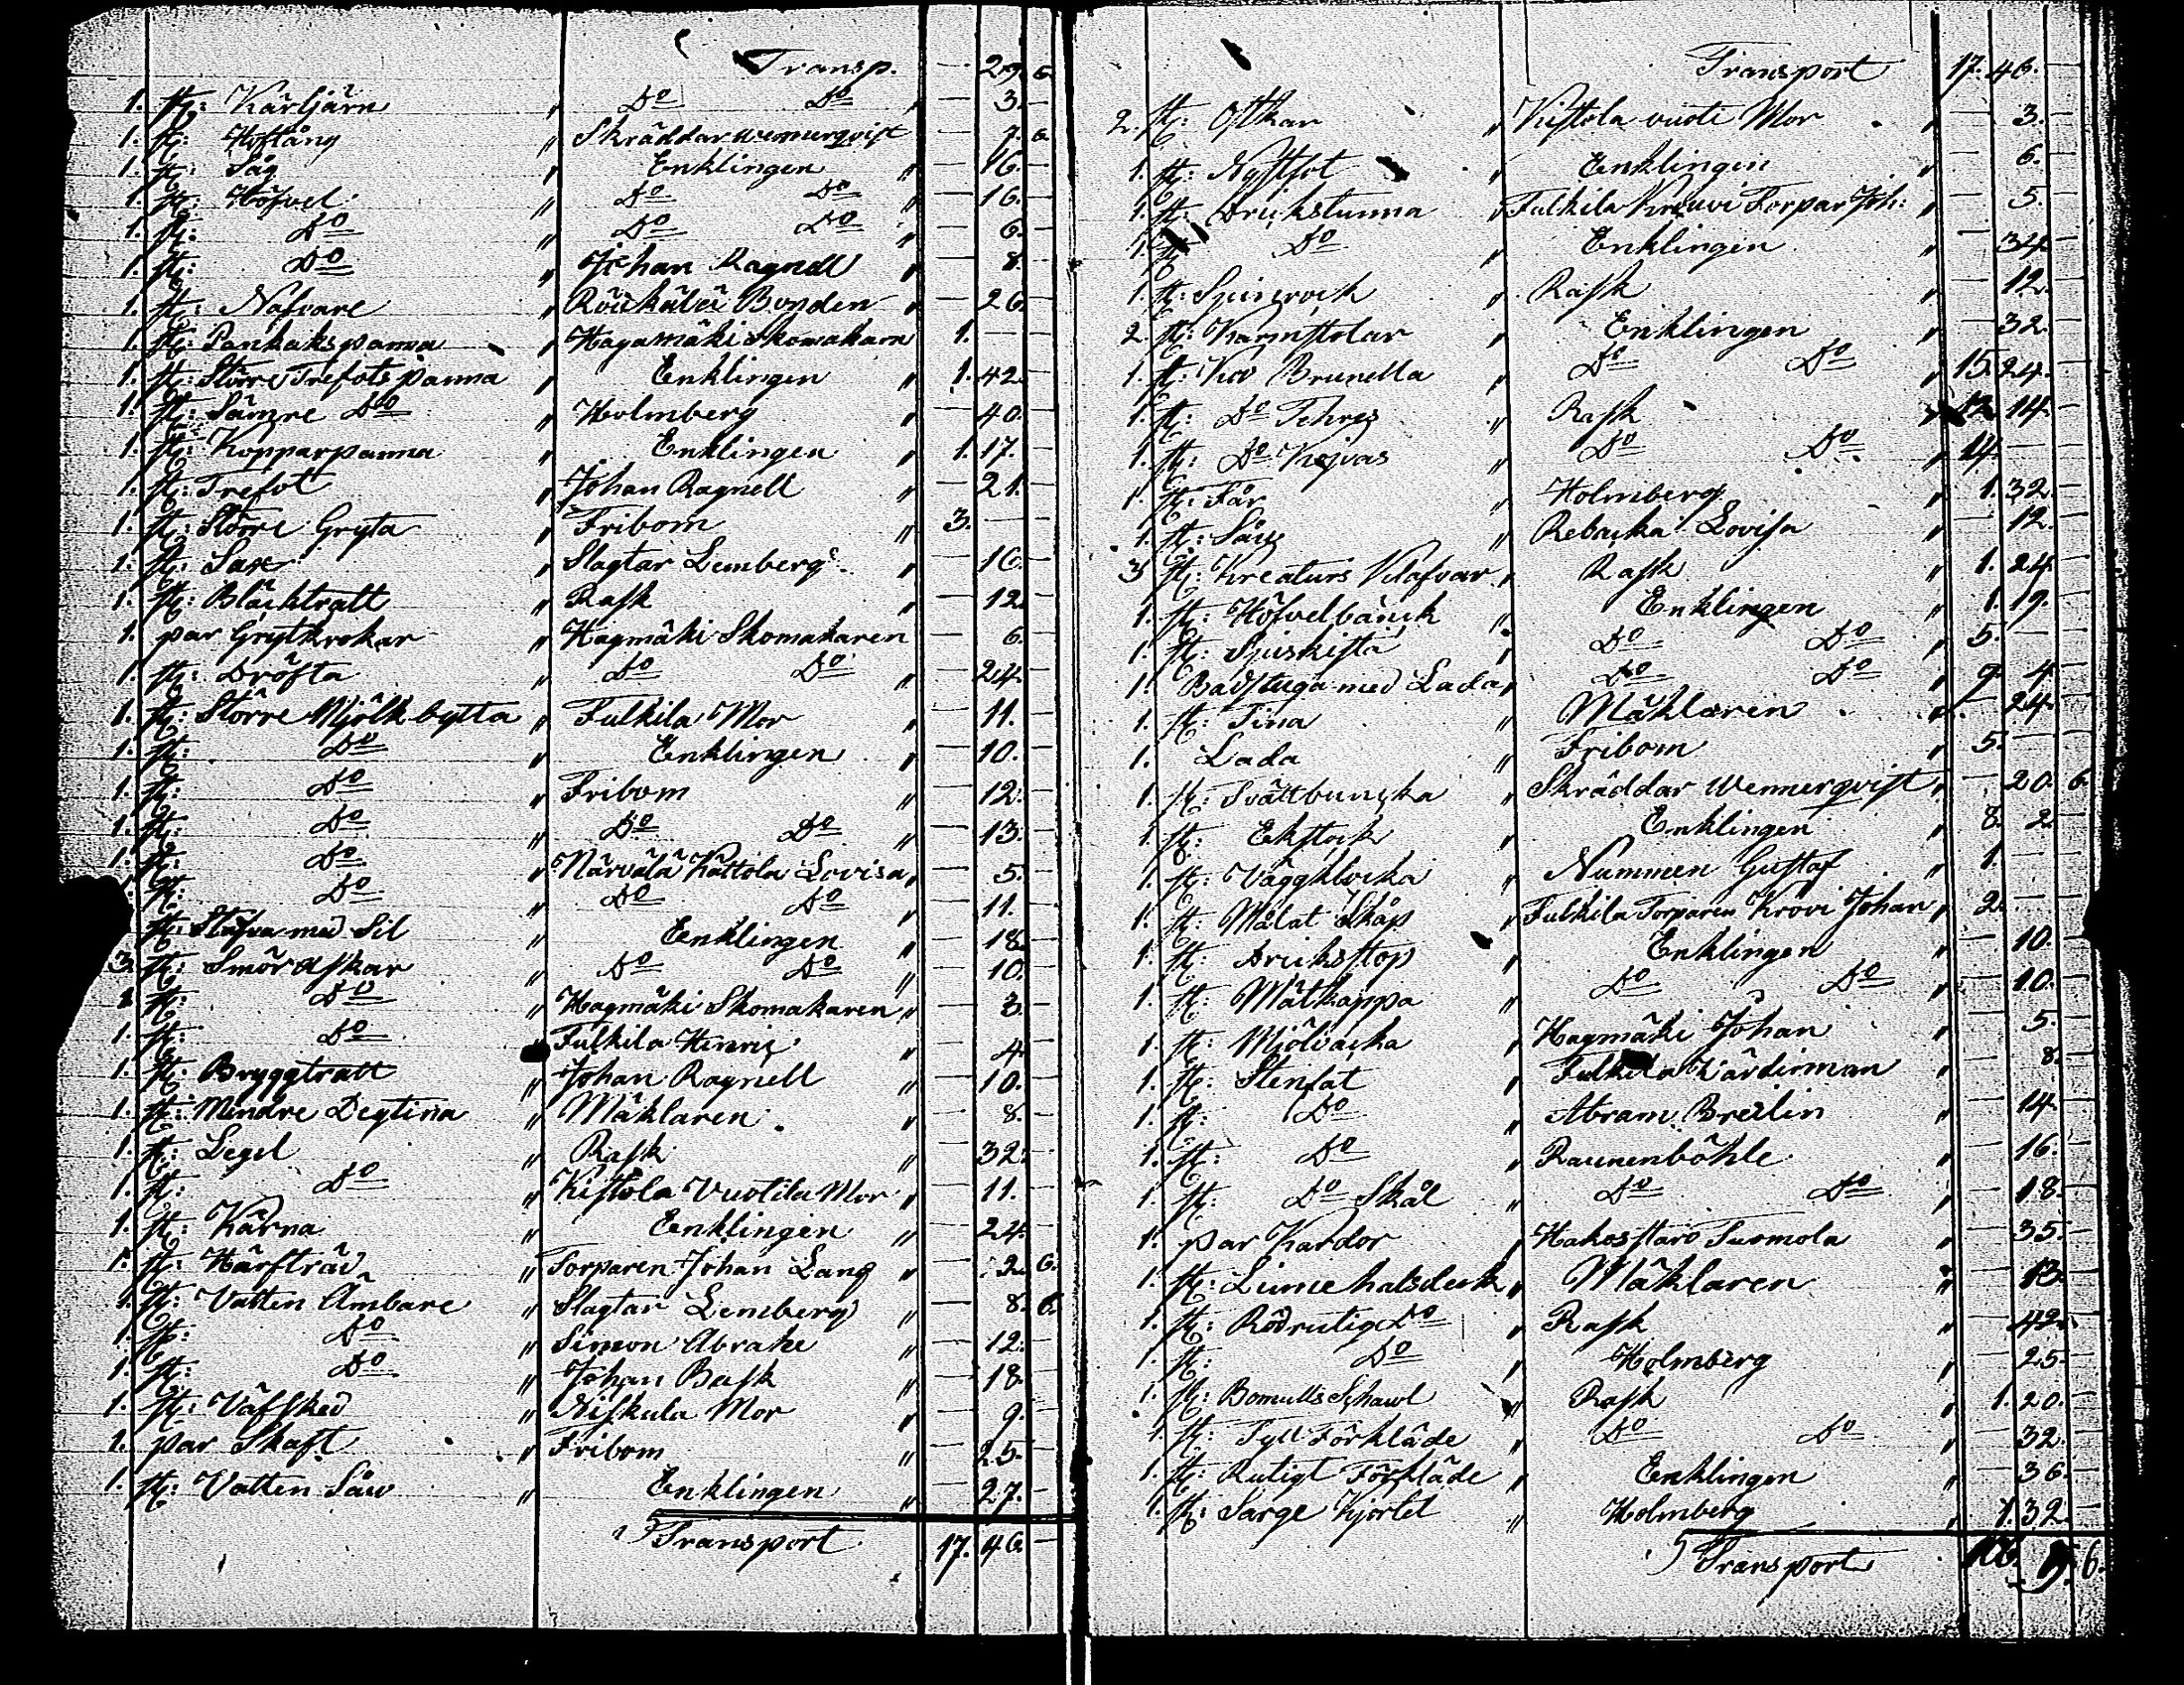 Transp. — 29. 6.
1. st: Kärljärn " Do Do " — 3. —
1. st: Hoftång " Skräddar Wennerqvist — 7. 6.
1. st: Såg " Enklingen " — 16. —
1. st: Höfvel " Do Do " — 16. —
1. st: Do " Do Do " — 6. —
1. st: Do " Johan Ragnell " — 8. —
1. st: Nafvare " Bonden — 26. —
1. st: Pankakspanna " Hagamäki Skomakarn 1. — —
1. st: Större Trefots panna " Enklingen " 1. 42. —
1. st: Sämre Do " Holmberg — 40. —
1. st: Kopparpanna " Enklingen " 1. 17. —
1. st: Trefot " Johan Ragnell " — 21. —
1. st: Större Gryta " Fribom " 3. — —
1. st: Sax " Slagtar Lemberg " — 16. —
1. st: Bläcktratt " Rask " — 12. —
1. par Grytkrokar " Hagmäki Skomakaren — 6. —
1. st: Dröfta " Do Do " — 24. —
1. st: Större Mjölkbytta " Fulkila Mor " — 11. —
1. st: Do " Enklingen " — 10. —
1. st: Do " Fribom " — 12. —
1. st: Do " Do Do " — 13. —
1. st: Do " Närvälä Kättola Lovisa " — 5. —
1. st: Do " Do Do " — 11. —
st: Stäfva med Sil " Enklingen — 18. —
3. st: Smör askar " Do Do " — 10. —
1. st: Do " Hagmäki Skomakaren " — 3. —
1. st: Do " Fulkila Henric " — 4. —
1. st: Bryggtratt " Johan Ragnell " — 10. —
1. st: Mindre Degtina " Mäklaren " — 8. —
1. st: Legel " Rask " — 32. —
1. st: Do " Kistola Vuotila Mor " — 11. —
1. st: Kärna " Enklingen " — 24. —
1. st: Härfträd " Torparen Johan Lang " — 2. 6.
1. st: Vatten Ämbare " Slagtar Lemberg " — 8. 6.
1. st: Do " Simon Abrahe " — 12. —
1. st: Do " Johan Bask " — 18. —
1. st: Väfsked " Niskula Mor " — 9. —
1. par Skaft " Fribom " — 25. —
1. st: Vatten Såw " Enklingen " — 27. —
Transport 17. 46. —
Transport 17. 46. —
2. st: Ostkar " Kistola Mor " — 3. —
1. st: " Enklingen " — 6. —
1. st: Drickstunna " Fulkila Torpar Joh: — 5. —
1. st: Do " Enklingen " — 34. —
1. st: Spinrock " Rask " — 12. —
2. st: Karmstolar " Enklingen " — 32. —
1. st: Kio Brunella " Do Do " 15. 24. —
1. st: Do " Rask " 12. 14. —
1. st: Do " Do Do " 14. — —
1. st: Får " Holmberg " 1. 32. —
1. st: Såw " Rebecka Lovisa " — 12. —
3. st: Kreaturs Klafvar " Rask " 1. 24. —
1. st: Höfvelbänck " Enklingen " 1. 19. —
1. st: Spiskista " Do Do " 5. — —
1. Badstuga med Lada " Do Do " 9. 4. —
1. st: Tina " Mäklaren " — 24. —
1. Lada " Fribom " 5. — —
1. st: Tvättbuncka " Skräddar Wennerqvist " — 20. 6.
1. st: Ekstock " Enklingen " 8. 2. —
1. st: Väggklocka " Nummen Gustaf " 1. — —
1. st: Målat Skåp " Fulkila Torparen Krovi Johan " 2. — —
1. st: Dricksstop " Enklingen " — 10. —
1. st: Mätkappa " Do Do " — 10. —
1. st: Mjölvacka " Hagmäki Johan " — 5. —
1. st: Stenfat " Fulkila — 8. —
1. st: Do " Abram Breilin " — 14. —
1. st: Do " Raunenböhle " — 16. —
1. st: Do Skål " Do Do " — 18. —
1. par Kardor " Tuomola " — 35. —
1. st: Linne halsduk " Mäklaren " — 13. —
1. st: Rödrutig Do " Rask " — 42. —
1. st: Do " Holmberg " — 25. —
1. st: Bomulls Schawl " Rask " 1. 20. —
1. st: Tyll Förkläde " Do Do " — 32. —
1. st: Rutigt Förkläde " Enklingen " — 36. —
1. st: Sarge Kjortel " Holmberg " 1. 32. —
Transport 5. 6.